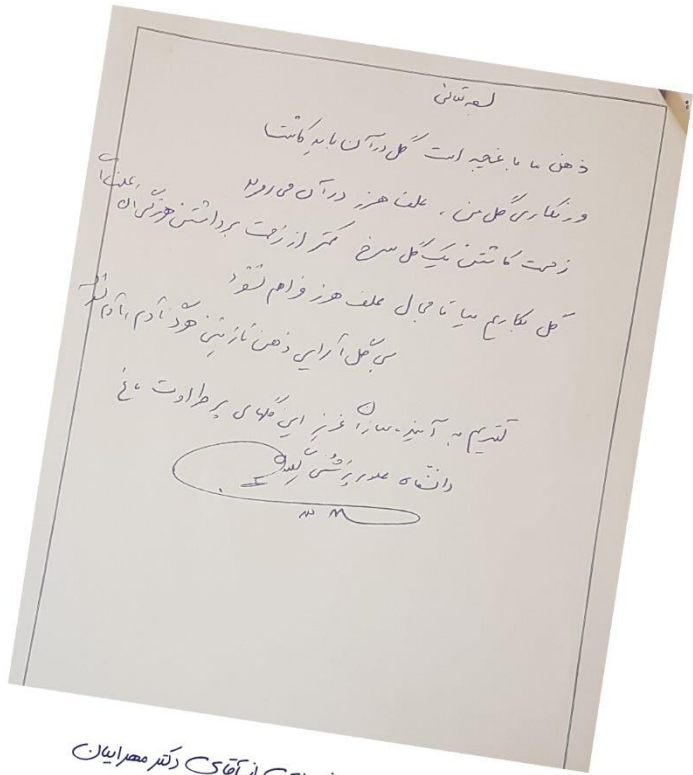 بسمه تعالی
ذهن ما باغچه است گل در آن باید کاشت
ور نکاری گل من ، علف هرز در آن می روید
زحمت کاشتن یک گل سرخ کمتر از زحمت برداشتن هرزگی آن علف است
گل بکاریم بیا تا مجال علف هرز فراهم نشود
بی گل آرایی ذهن نازنین هرگز آدم ، آدم نشود
تقدیم به آینده سازان عزیز این گلهای پر طراوت باغ
دانشگاه علوم پزشکی
از آقای دکتر مهرابیان